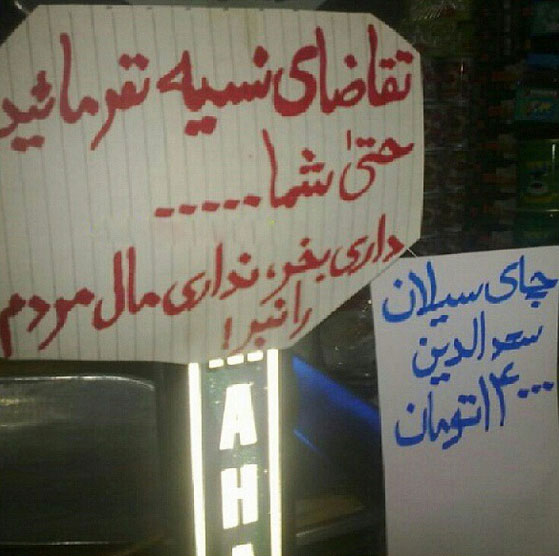 تقاضای نسیه نفرمائید
حتیٰ شما.....
داری بخر، نداری مال مردم
را نبر!
چای سیلان
سعدالدین
۱۴۰۰۰ تومان
AHA